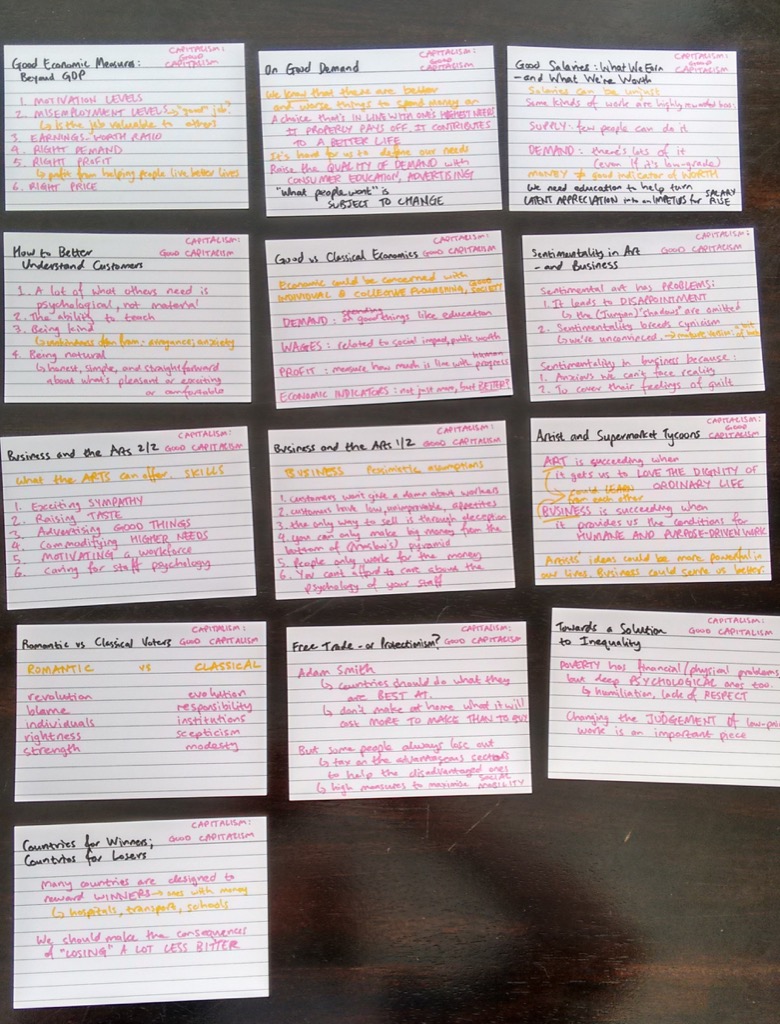 Good Economic Measures:
Beyond GDP
CAPITALISM:
GOOD
CAPITALISM
1. MOTIVATION LEVELS
2. MISEMPLOYMENT LEVELS → "good" job?
↳ is the job valuable to others
3. EARNINGS-WORTH RATIO
4. RIGHT DEMAND
5. RIGHT PROFIT
↳ profit from helping people live better lives
6. RIGHT PRICE
On Good Demand
CAPITALISM:
GOOD
CAPITALISM
We know that there are better
and worse things to spend money on
A choice that's IN LINE WITH ONE'S HIGHEST NEEDS
IT PROPERLY PAYS OFF. IT CONTRIBUTES
TO A BETTER LIFE
It's hard for us to define our needs
Raise the QUALITY OF DEMAND with
CONSUMER EDUCATION, ADVERTISING
"What people want" is
SUBJECT TO CHANGE
Good Salaries: What We Earn
- and What We're Worth
CAPITALISM:
GOOD
CAPITALISM
Salaries can be unjust
Some kinds of work are highly rewarded
SUPPLY: few people can do it
DEMAND: there's lots of it
(even if it's low-grade)
MONEY ≠ good indicator of WORTH
We need education to help turn
LATENT APPRECIATION into an IMPETUS for SALARY RISE
How to Better
Understand Customers
CAPITALISM:
GOOD CAPITALISM
1. A lot of what others need is
psychological, not material
2. The ability to teach
3. Being kind
↳ unkindness often from: arrogance; anxiety
4. Being natural
↳ honest, simple, and straightforward
about what's pleasant or exciting
or comfortable
Good vs Classical Economics
CAPITALISM:
GOOD CAPITALISM
Economics could be concerned with
INDIVIDUAL & COLLECTIVE FLOURISHING, GOOD SOCIETY
DEMAND: spending on good things like education
WAGES: related to social impact, public worth
PROFIT: measure how much is line with human progress
ECONOMIC INDICATORS: not just more, but BETTER?
Sentimentality in Art
- and Business
CAPITALISM:
GOOD CAPITALISM
Sentimental art has PROBLEMS:
1. It leads to DISAPPOINTMENT
↳ the (Jungian) 'shadows' are omitted
2. Sentimentality breeds cynicism
↳ we're unconvinced
Sentimentality in business because:
1. Anxious we can't face reality
2. To cover their feelings of guilt
Business and the Arts 2/2
CAPITALISM:
GOOD CAPITALISM
What the ARTS can offer. SKILLS
1. Exciting SYMPATHY
2. Raising TASTE
3. Advertising GOOD THINGS
4. Commodifying HIGHER NEEDS
5. MOTIVATING a workforce
6. Caring for staff psychology
Business and the Arts 1/2
CAPITALISM:
GOOD CAPITALISM
BUSINESS Pessimistic assumptions
1. customers won't give a damn about workers
2. customers have low, unimprovable, appetites
3. the only way to sell is through deception
4. you can only make big money from the
bottom of (Maslow's) pyramid
5. People only work for the money
6. You can't afford to care about the
psychology of your staff
Artist and Supermarket Tycoons
CAPITALISM:
GOOD
CAPITALISM
ART is succeeding when
it gets us to LOVE THE DIGNITY OF
ORDINARY LIFE
could LEARN
from each other
BUSINESS is succeeding when
it provides us the conditions for
HUMANE AND PURPOSE-DRIVEN WORK
Artists' ideas could be more powerful in
our lives. Business could serve us better.
Romantic vs Classical Voters
CAPITALISM:
GOOD CAPITALISM
ROMANTIC vs CLASSICAL
revolution evolution
blame responsibility
individuals institutions
rightness scepticism
strength modesty
Free Trade - or Protectionism?
CAPITALISM:
GOOD CAPITALISM
Adam Smith
↳ countries should do what they
are BEST AT.
↳ don't make at home what it will
cost MORE TO MAKE THAN TO BUY
But some people always lose out
↳ tax on the advantageous sectors
to help the disadvantaged ones
↳ high measures to maximise SOCIAL MOBILITY
Towards a Solution
to Inequality
CAPITALISM:
GOOD CAPITALISM
POVERTY has financial/physical problems
but deep PSYCHOLOGICAL ones too.
↳ humiliation, lack of RESPECT
Changing the JUDGEMENT of low-
work is an important piece
Countries for Winners;
Countries for Losers
CAPITALISM:
GOOD CAPITALISM
Many countries are designed to
reward WINNERS → ones with money
↳ hospitals, transport, schools
We should make the consequences
of "LOSING" A LOT LESS BITTER